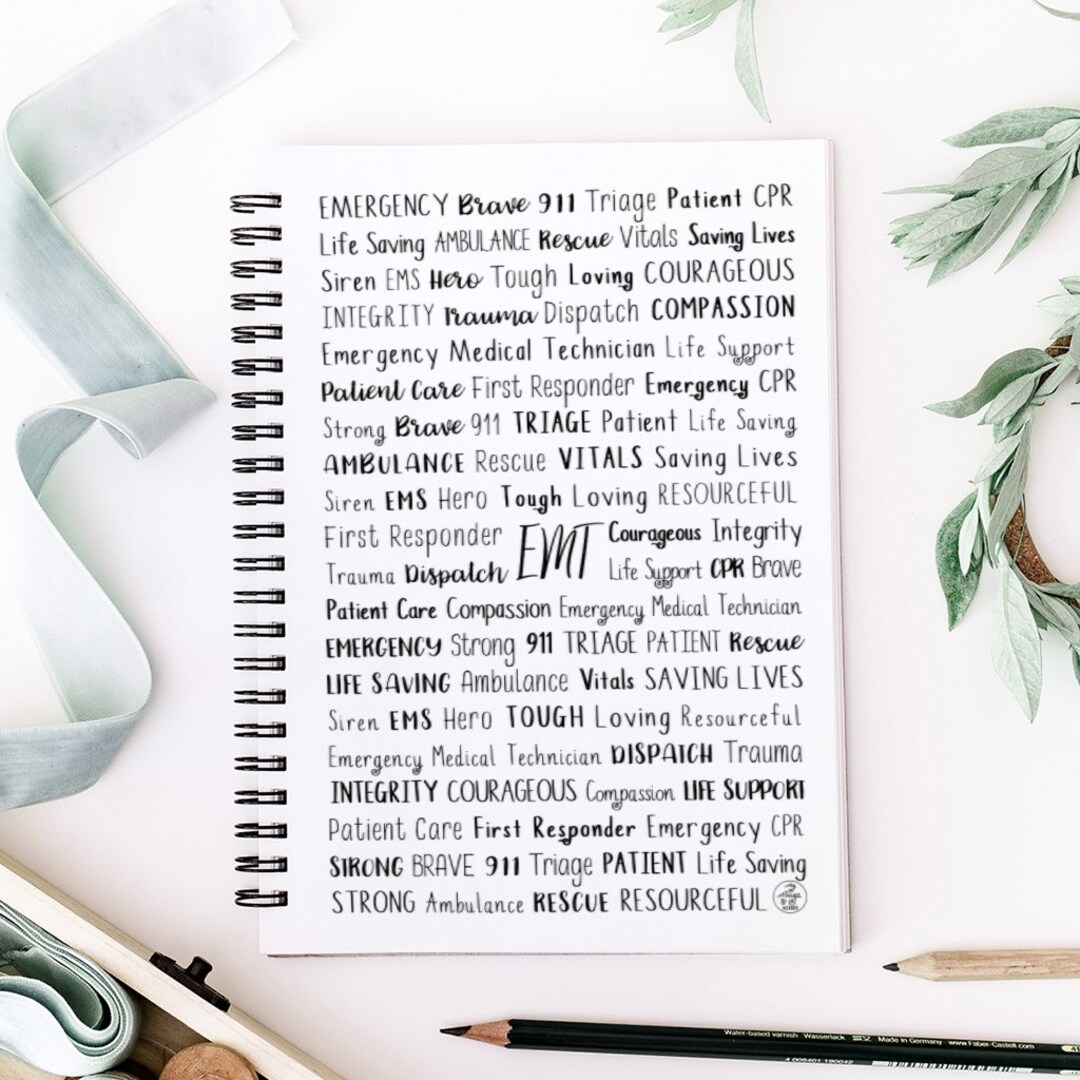 EMERGENCY Brave 911 Triage Patient CPR
Life Saving AMBULANCE Rescue Vitals Saving Lives
Siren EMS Hero Tough Loving COURAGEOUS
INTEGRITY Trauma Dispatch COMPASSION
Emergency Medical Technician Life Support
Patient Care First Responder Emergency CPR
Strong Brave 911 TRIAGE Patient Life Saving
AMBULANCE Rescue VITALS Saving Lives
Siren EMS Hero Tough Loving RESOURCEFUL
First Responder EMT Courageous Integrity
Trauma Dispatch Life Support CPR Brave
Patient Care Compassion Emergency Medical Technician
EMERGENCY Strong 911 TRIAGE PATIENT Rescue
LIFE SAVING Ambulance Vitals SAVING LIVES
Siren EMS Hero TOUGH Loving Resourceful
Emergency Medical Technician DISPATCH Trauma
INTEGRITY COURAGEOUS Compassion LIFE SUPPORT
Patient Care First Responder Emergency CPR
STRONG BRAVE 911 Triage PATIENT Life Saving
STRONG Ambulance RESCUE RESOURCEFUL
Water-based varnish Wasserlack Made in Germany www.Faber-Castell.com
4 005401 190042